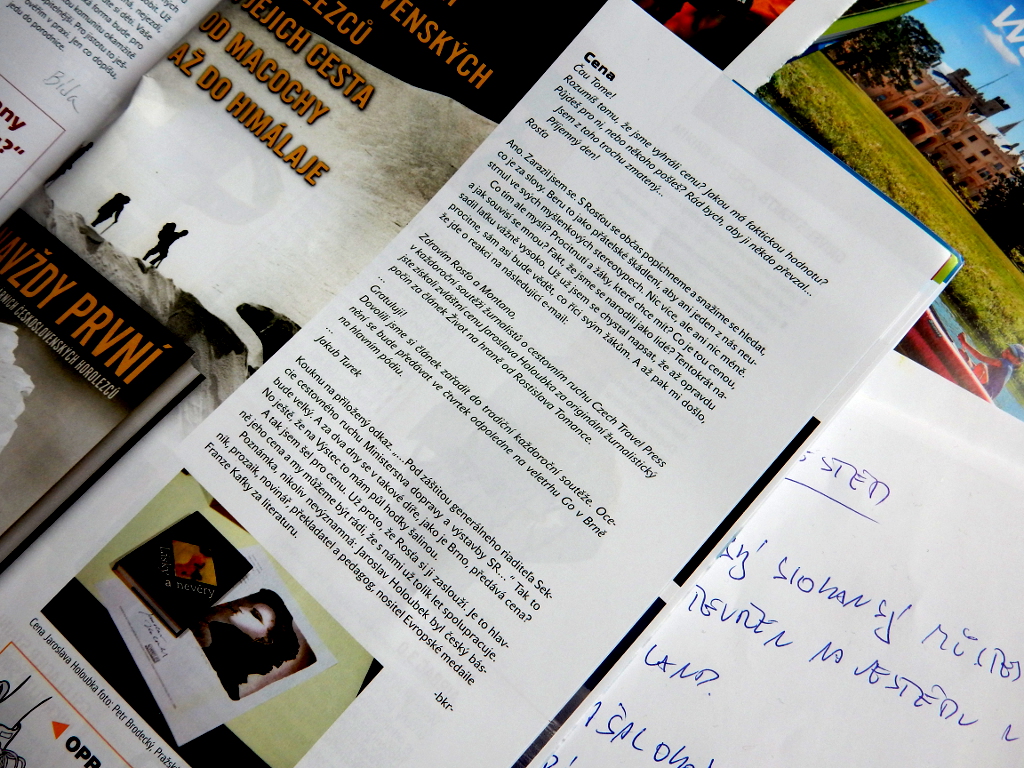 Cena
Čau Tome!
Rozumíš tomu, že jsme vyhráli cenu? Jakou má faktickou hodnotu?
Půjdeš pro ni, nebo někoho pošleš? Rád bych, aby ji někdo převzal...
Jsem z toho trochu zmatený...
Příjemný den!
Rosťa
Ano. Zarazil jsem se. S Rosťou se občas popichneme a snažíme se hledat,
co je za slovy. Beru to jako přátelské škádlení, aby ani jeden z nás neu-
strnul ve svých myšlenkových stereotypech. Nic více, ale ani nic méně.
Co tím ale myslí? Procitnutí a žáky, které chce mít? Co je tou cenou,
a jak souvisí se mnou? Fakt, že jsme se narodili jako lidé? Tentokrát na-
sadil laťku vážně vysoko. Už už jsem se chystal napsat, že až opravdu
procitne, sám asi bude vědět, co říci svým žákům. A až pak mi došlo,
že jde o reakci na následující e-mail:
Zdravím Rosťo a Montano,
v každoroční soutěži žurnalistů o cestovním ruchu Czech Travel Press
jste získali zvláštní cenu Jaroslava Holoubka za originální žurnalistický
počin za článek Život na hraně od Rostislava Tomance.
...
Gratuluji!
Dovolili jsme si článek zařadit do tradiční každoroční soutěže. Oce-
nění se bude předávat ve čtvrtek odpoledne na veletrhu Go v Brně
na hlavním pódiu.
...
Jakub Turek
Kouknu na přiložený odkaz. „...Pod záštitou generálneho riaditeľa Sek-
cie cestovného ruchu Ministerstva dopravy a výstavby SR...“ Tak to
bude velký. A za dva dny se v takové díře, jako je Brno, předává cena?
No ještě, že na Výstec to mám půl hodky šalinou.
A tak jsem šel pro cenu. Už proto, že Rosťa si ji zaslouží. Je to hlav-
ně jeho cena a my můžeme být rádi, že s námi už tolik let spolupracuje.
Poznámka, nikoliv nevýznamná: Jaroslav Holoubek byl český bás-
ník, prozaik, novinář, překladatel a pedagog, nositel Evropské medaile
Franze Kafky za literaturu.
-bkr-
Cena Jaroslava Holoubka foto: Petr Brodecký, Pražsk
lásky
a nevěry
JEJICH CESTA
OD MACOCHY
AŽ DO HIMÁLAJE
VENSKÝCH
LEZCŮ
AVŽDY PRVNÍ
ČESKOSLOVENSKÝCH HOROLEZCŮ
any
?“
OPR
jedu do
porodnice.
LAND.